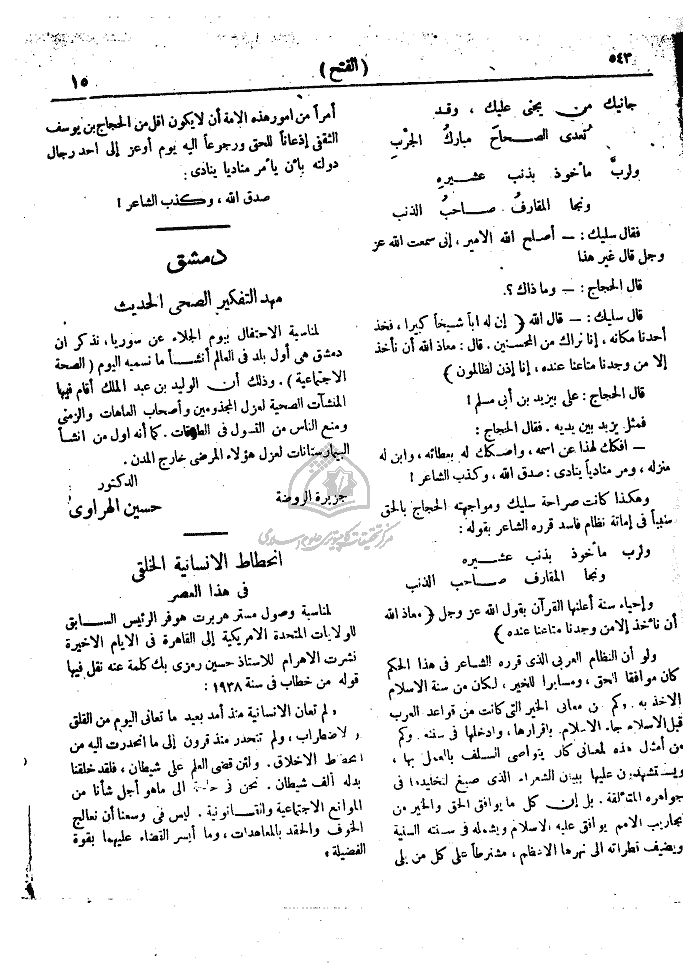 ٥٤٣
( الفتح )
١٥
جانيك من يجنى عليك ، وقد
تعدى الصحاحَ مباركُ الجُرْبِ
ولربَّ مأخوذ بذنب عشيرهِ
ونجا المقارفُ صاحبُ الذنب
فقال سليك : — أصلح الله الامير ، إنى سمعت الله عز
وجل قال غير هذا
قال الحجاج : — وما ذاك ؟.
قال سليك : — قال الله ﴿ إن له اباً شيخاً كبيرا ، فخذ
أحدنا مكانه ، إنا نراك من المحسنين . قال : معاذ الله أن نأخذ
إلا من وجدنا متاعنا عنده ، إنا إذن لظالمون ﴾
قال الحجاج : على بيزيد بن أبى مسلم !
فمثل يزيد بين يديه . فقال الحجاج :
— افكك لهذا عن اسمه ، واصكك له بعطائه ، وابن له
منزله ، ومر منادياً ينادى : صدق الله ، وكذب الشاعر !
وهكذا كانت صراحة سليك ومواجهته الحجاج بالحق
سبباً فى إماتة نظام فاسد قرره الشاعر بقوله :
ولرب مأخوذ بذنب عشيره
ونجا المقارف صاحب الذنب
وإحياء سنة أعلنها القرآن بقول الله عز وجل ﴿ معاذ الله
أن نأخذ إلا من وجدنا متاعنا عنده ﴾
ولو أن النظام العربى الذى قرره الشاعر فى هذا الحكم
كان موافقا للحق ، ومسايرا للخير ، لكان من سنة الاسلام
الاخذ به وكم من معانى الخير التى كانت من قواعد العرب
قبل الاسلام جاء الاسلام باقرارها ، وادخلها فى سننه وكم
من أمثل هذه المعانى كان يتواصى السلف بالعمل بها ،
ويستشهدون عليها ببيان الشعراء الذى صيغ لتخليدها فى
جواهره المتألقة . بل إن كل ما يوافق الحق والخير من
تجاريب الامم يوافق عليه الاسلام ويشمله فى سننه السنية
ويضيف نطراته الى نهرها الاعظم ، مشترطاً على كل من يلى
أمراً من امور هذه الامة أن لا يكون اقل من الحجاج بن يوسف
الثقفى إذعاناً للحق ورجوعاً اليه يوم أوعز إلى احد رجال
دولته بأن يأمر مناديا ينادى :
صدق الله ، وكذب الشاعر !
دمشق
مهد التفكير الصحى الحديث
لمناسبة الاحتفال بيوم الجلاء عن سوريا ، نذكر ان
دمشق هى أول بلد فى العالم أنشأ ما نسميه اليوم ( الصحة
الاجتماعية ) . وذلك أن الوليد بن عبد الملك أقام فيها
المنشآت الصحية لعزل المجذومين وأصحاب العاهات والزمنى
ومنع الناس من التسول فى الطرقات . كما أنه اول من انشأ
البيمارستانات لعزل هؤلاء المرضى خارج المدن .
الدكتور
جزيرة الروضة
حسين الهراوى
مركز تحقيقات كامپيوترى علوم اسلامى
انحطاط الانسانية الخلقى
فى هذا العصر
لمناسبة وصول مستر هربرت هوفر الرئيس السابق
للولايات المتحدة الامريكية إلى القاهرة فى الايام الاخيرة
نشرت الاهرام للاستاذ حسين رمزى بك كلمة عنه نقل فيها
قوله من خطاب فى سنة ١٩٣٨ :
« لم تعان الانسانية منذ أمد بعيد ما تعانى اليوم من القلق
والاضطراب ، ولم تنحدر منذ قرون إلى ما انحدرت اليه من
انحطاط الاخلاق . ولئن قضى العلم على شيطان ، فلقد خلقنا
بدله ألف شيطان . نحن فى حاجة الى ماهو أجل شأنا من
الموانع الاجتماعية والقانونية . ليس فى وسعنا أن نعالج
الخوف والحقد بالمعاهدات ، وما أيسر القضاء عليهما بقوة
الفضيلة »